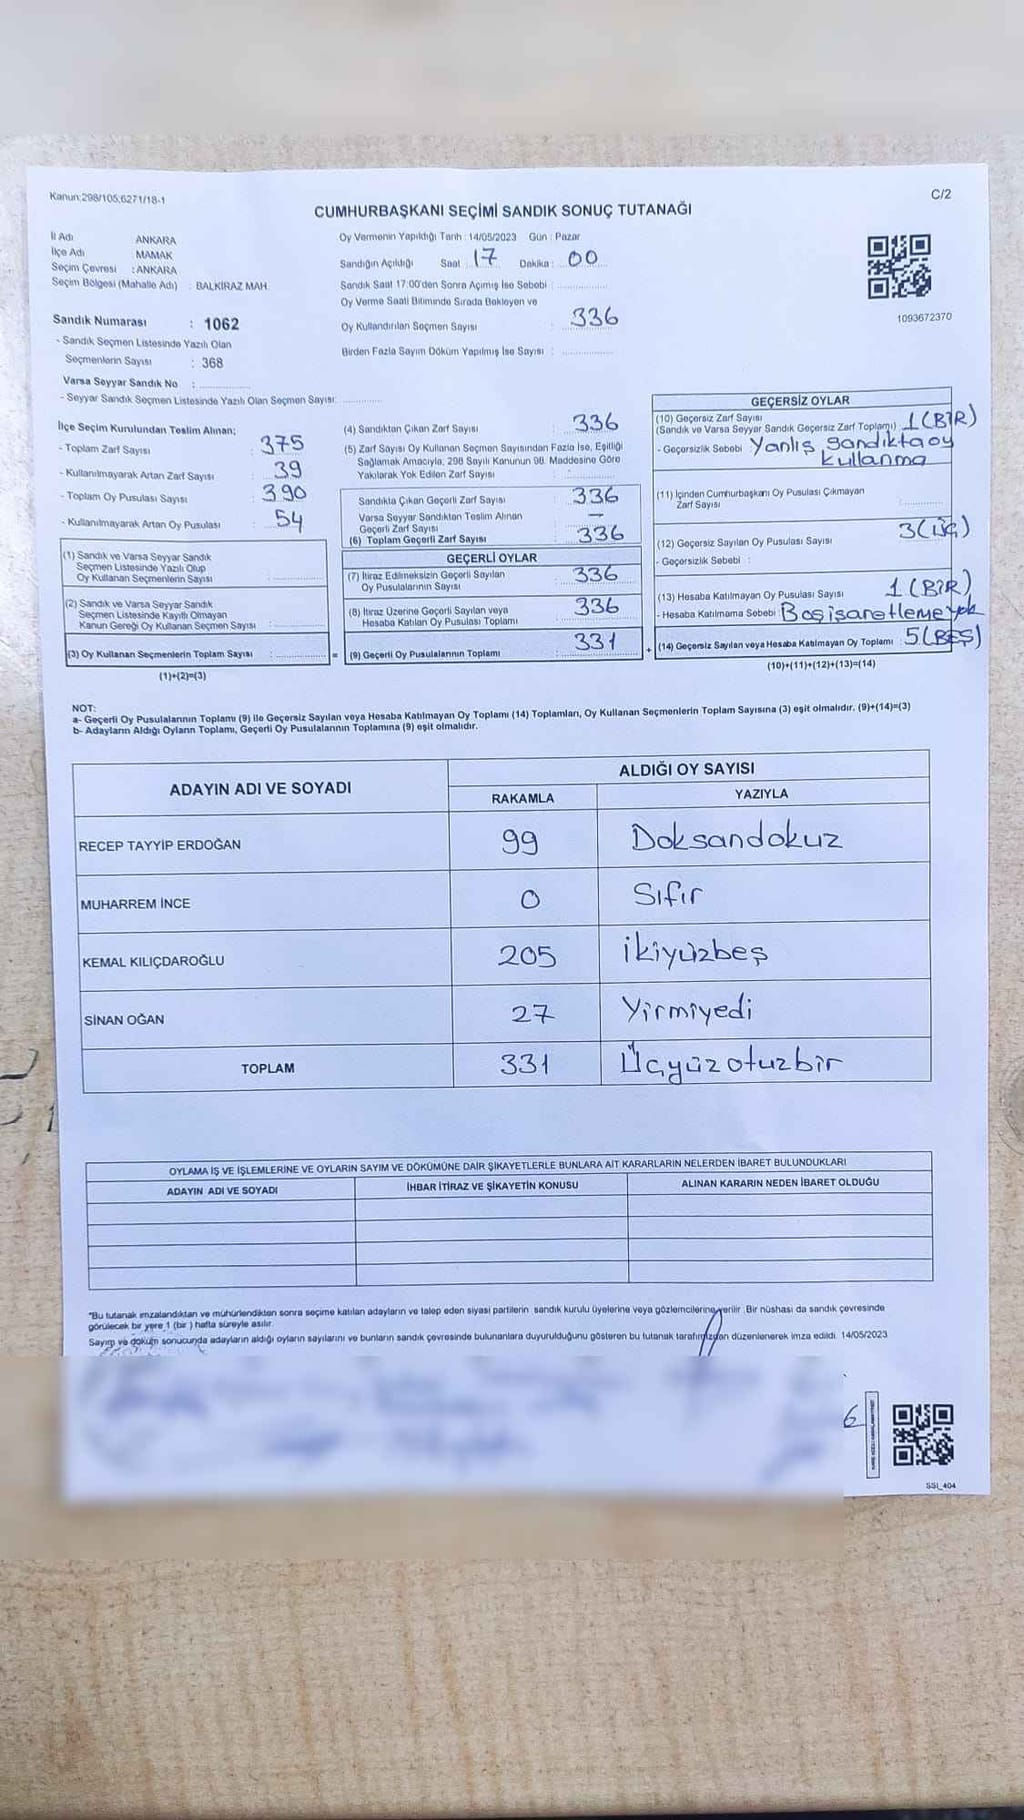 Kanun:298/105;6271/18-1
C/2
CUMHURBAŞKANI SEÇİMİ SANDIK SONUÇ TUTANAĞI
İl Adı ANKARA
İlçe Adı MAMAK
Seçim Çevresi : ANKARA
Seçim Bölgesi (Mahalle Adı) : BALKİRAZ MAH.
Sandık Numarası : 1062
- Sandık Seçmen Listesinde Yazılı Olan
Seçmenlerin Sayısı : 368
Varsa Seyyar Sandık No :
- Seyyar Sandık Seçmen Listesinde Yazılı Olan Seçmen Sayısı:
Oy Vermenin Yapıldığı Tarih : 14/05/2023 Gün : Pazar
Sandığın Açıldığı Saat : 17 Dakika : 00
Sandık Saat 17:00'den Sonra Açımış İse Sebebi :
Oy Verme Saati Bitiminde Sırada Bekleyen ve
Oy Kullandırılan Seçmen Sayısı : 336
Birden Fazla Sayım Döküm Yapılmış İse Sayısı :
1093672370
İlçe Seçim Kurulundan Teslim Alınan;
- Toplam Zarf Sayısı : 375
- Kullanılmayarak Artan Zarf Sayısı : 39
- Toplam Oy Pusulası Sayısı : 390
- Kullanılmayarak Artan Oy Pusulası : 54
(1) Sandık ve Varsa Seyyar Sandık
Seçmen Listesinde Yazılı Olup
Oy Kullanan Seçmenlerin Sayısı :
(2) Sandık ve Varsa Seyyar Sandık
Seçmen Listesinde Kayıtlı Olmayan
Kanun Gereği Oy Kullanan Seçmen Sayısı :
(3) Oy Kullanan Seçmenlerin Toplam Sayısı : =
(1)+(2)=(3)
(4) Sandıktan Çıkan Zarf Sayısı : 336
(5) Zarf Sayısı Oy Kullanan Seçmen Sayısından Fazla İse, Eşitliği
Sağlamak Amacıyla, 298 Sayılı Kanunun 98. Maddesine Göre
Yakılarak Yok Edilen Zarf Sayısı :
Sandıkta Çıkan Geçerli Zarf Sayısı : 336
Varsa Seyyar Sandıktan Teslim Alınan
Geçerli Zarf Sayısı : –
(6) Toplam Geçerli Zarf Sayısı : 336
GEÇERLİ OYLAR
(7) İtiraz Edilmeksizin Geçerli Sayılan
Oy Pusulalarının Sayısı : 336
(8) İtiraz Üzerine Geçerli Sayılan veya
Hesaba Katılan Oy Pusulası Toplamı : 336
(9) Geçerli Oy Pusulalarının Toplamı : 331 +
GEÇERSİZ OYLAR
(10) Geçersiz Zarf Sayısı
(Sandık ve Varsa Seyyar Sandık Geçersiz Zarf Toplamı) 1 (BİR)
- Geçersizlik Sebebi : Yanlış sandıkta oy
kullanma
(11) İçinden Cumhurbaşkanı Oy Pusulası Çıkmayan
Zarf Sayısı
(12) Geçersiz Sayılan Oy Pusulası Sayısı 3 (ÜÇ)
- Geçersizlik Sebebi :
(13) Hesaba Katılmayan Oy Pusulası Sayısı 1 (BİR)
- Hesaba Katılmama Sebebi : Boş işaretleme yok
(14) Geçersiz Sayılan veya Hesaba Katılmayan Oy Toplamı : 5 (BEŞ)
(10)+(11)+(12)+(13)=(14)
NOT:
a- Geçerli Oy Pusulalarının Toplamı (9) ile Geçersiz Sayılan veya Hesaba Katılmayan Oy Toplamı (14) Toplamları, Oy Kullanan Seçmenlerin Toplam Sayısına (3) eşit olmalıdır. (9)+(14)=(3)
b- Adayların Aldığı Oyların Toplamı, Geçerli Oy Pusulalarının Toplamına (9) eşit olmalıdır.
ADAYIN ADI VE SOYADI ALDIĞI OY SAYISI
RAKAMLA YAZIYLA
RECEP TAYYİP ERDOĞAN 99 Doksandokuz
MUHARREM İNCE 0 Sıfır
KEMAL KILIÇDAROĞLU 205 İkiyüzbeş
SİNAN OĞAN 27 Yirmiyedi
TOPLAM 331 Üçyüzotuzbir
OYLAMA İŞ VE İŞLEMLERİNE VE OYLARIN SAYIM VE DÖKÜMÜNE DAİR ŞİKAYETLERLE BUNLARA AİT KARARLARIN NELERDEN İBARET BULUNDUKLARI
ADAYIN ADI VE SOYADI İHBAR İTİRAZ VE ŞİKAYETİN KONUSU ALINAN KARARIN NEDEN İBARET OLDUĞU
*Bu tutanak imzalandıktan ve mühürlendikten sonra seçime katılan adayların ve talep eden siyasi partilerin sandık kurulu üyelerine veya gözlemcilerine verilir. Bir nüshası da sandık çevresinde
görülecek bir yere 1 (bir ) hafta süreyle asılır.
Sayım ve döküm sonucunda adayların aldığı oyların sayılarını ve bunların sandık çevresinde bulunanlara duyurulduğunu gösteren bu tutanak tarafımızdan düzenlenerek imza edildi. 14/05/2023
6
SSI_404